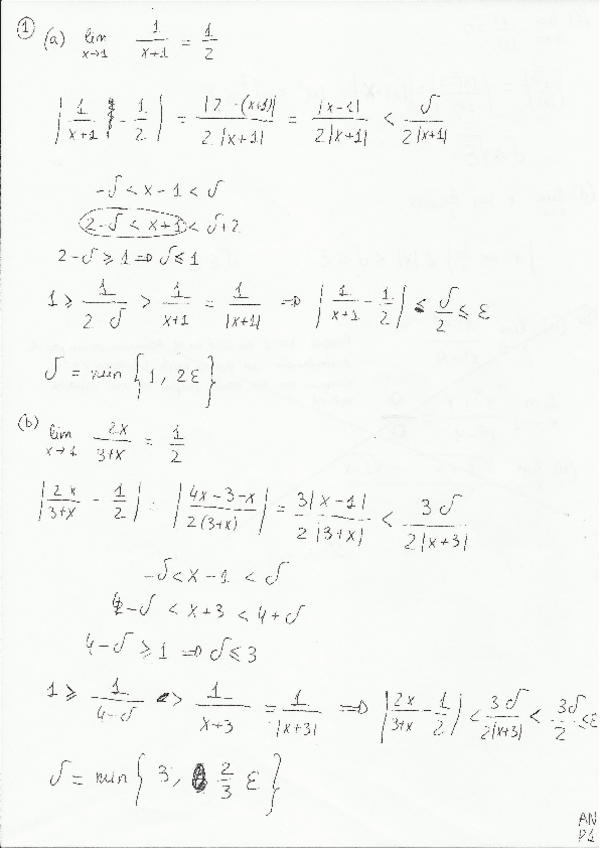 ① (a) lim x→1 1/(x+1) = 1/2
|1/(x+1) - 1/2| = |2-(x+1)|/(2|x+1|) = |x-1|/(2|x+1|) < δ/(2|x+1|)
-δ < x-1 < δ
2-δ < x+1 < δ+2
2-δ ≥ 1 ⇒ δ ≤ 1
1 ≥ 1/(2 δ) > 1/(x+1) = 1/|x+1| ⇒ |1/(x+1) - 1/2| ≤ δ/2 ≤ ε
δ = min {1, 2ε}
(b) lim x→1 2x/(3+x) = 1/2
|2x/(3+x) - 1/2| = |(4x-3-x)/(2(3+x))| = 3|x-1|/(2|3+x|) < 3δ/(2|x+3|)
-δ < x-1 < δ
4-δ < x+3 < 4+δ
4-δ ≥ 1 ⇒ δ ≤ 3
1 ≥ 1/(4-δ) > 1/(x+3) = 1/|x+3| ⇒ |2x/(3+x) - 1/2| < 3δ/(2|x+3|) < 3δ/2 ≤ ε
δ = min {3, 2/3 ε}
AN
P1